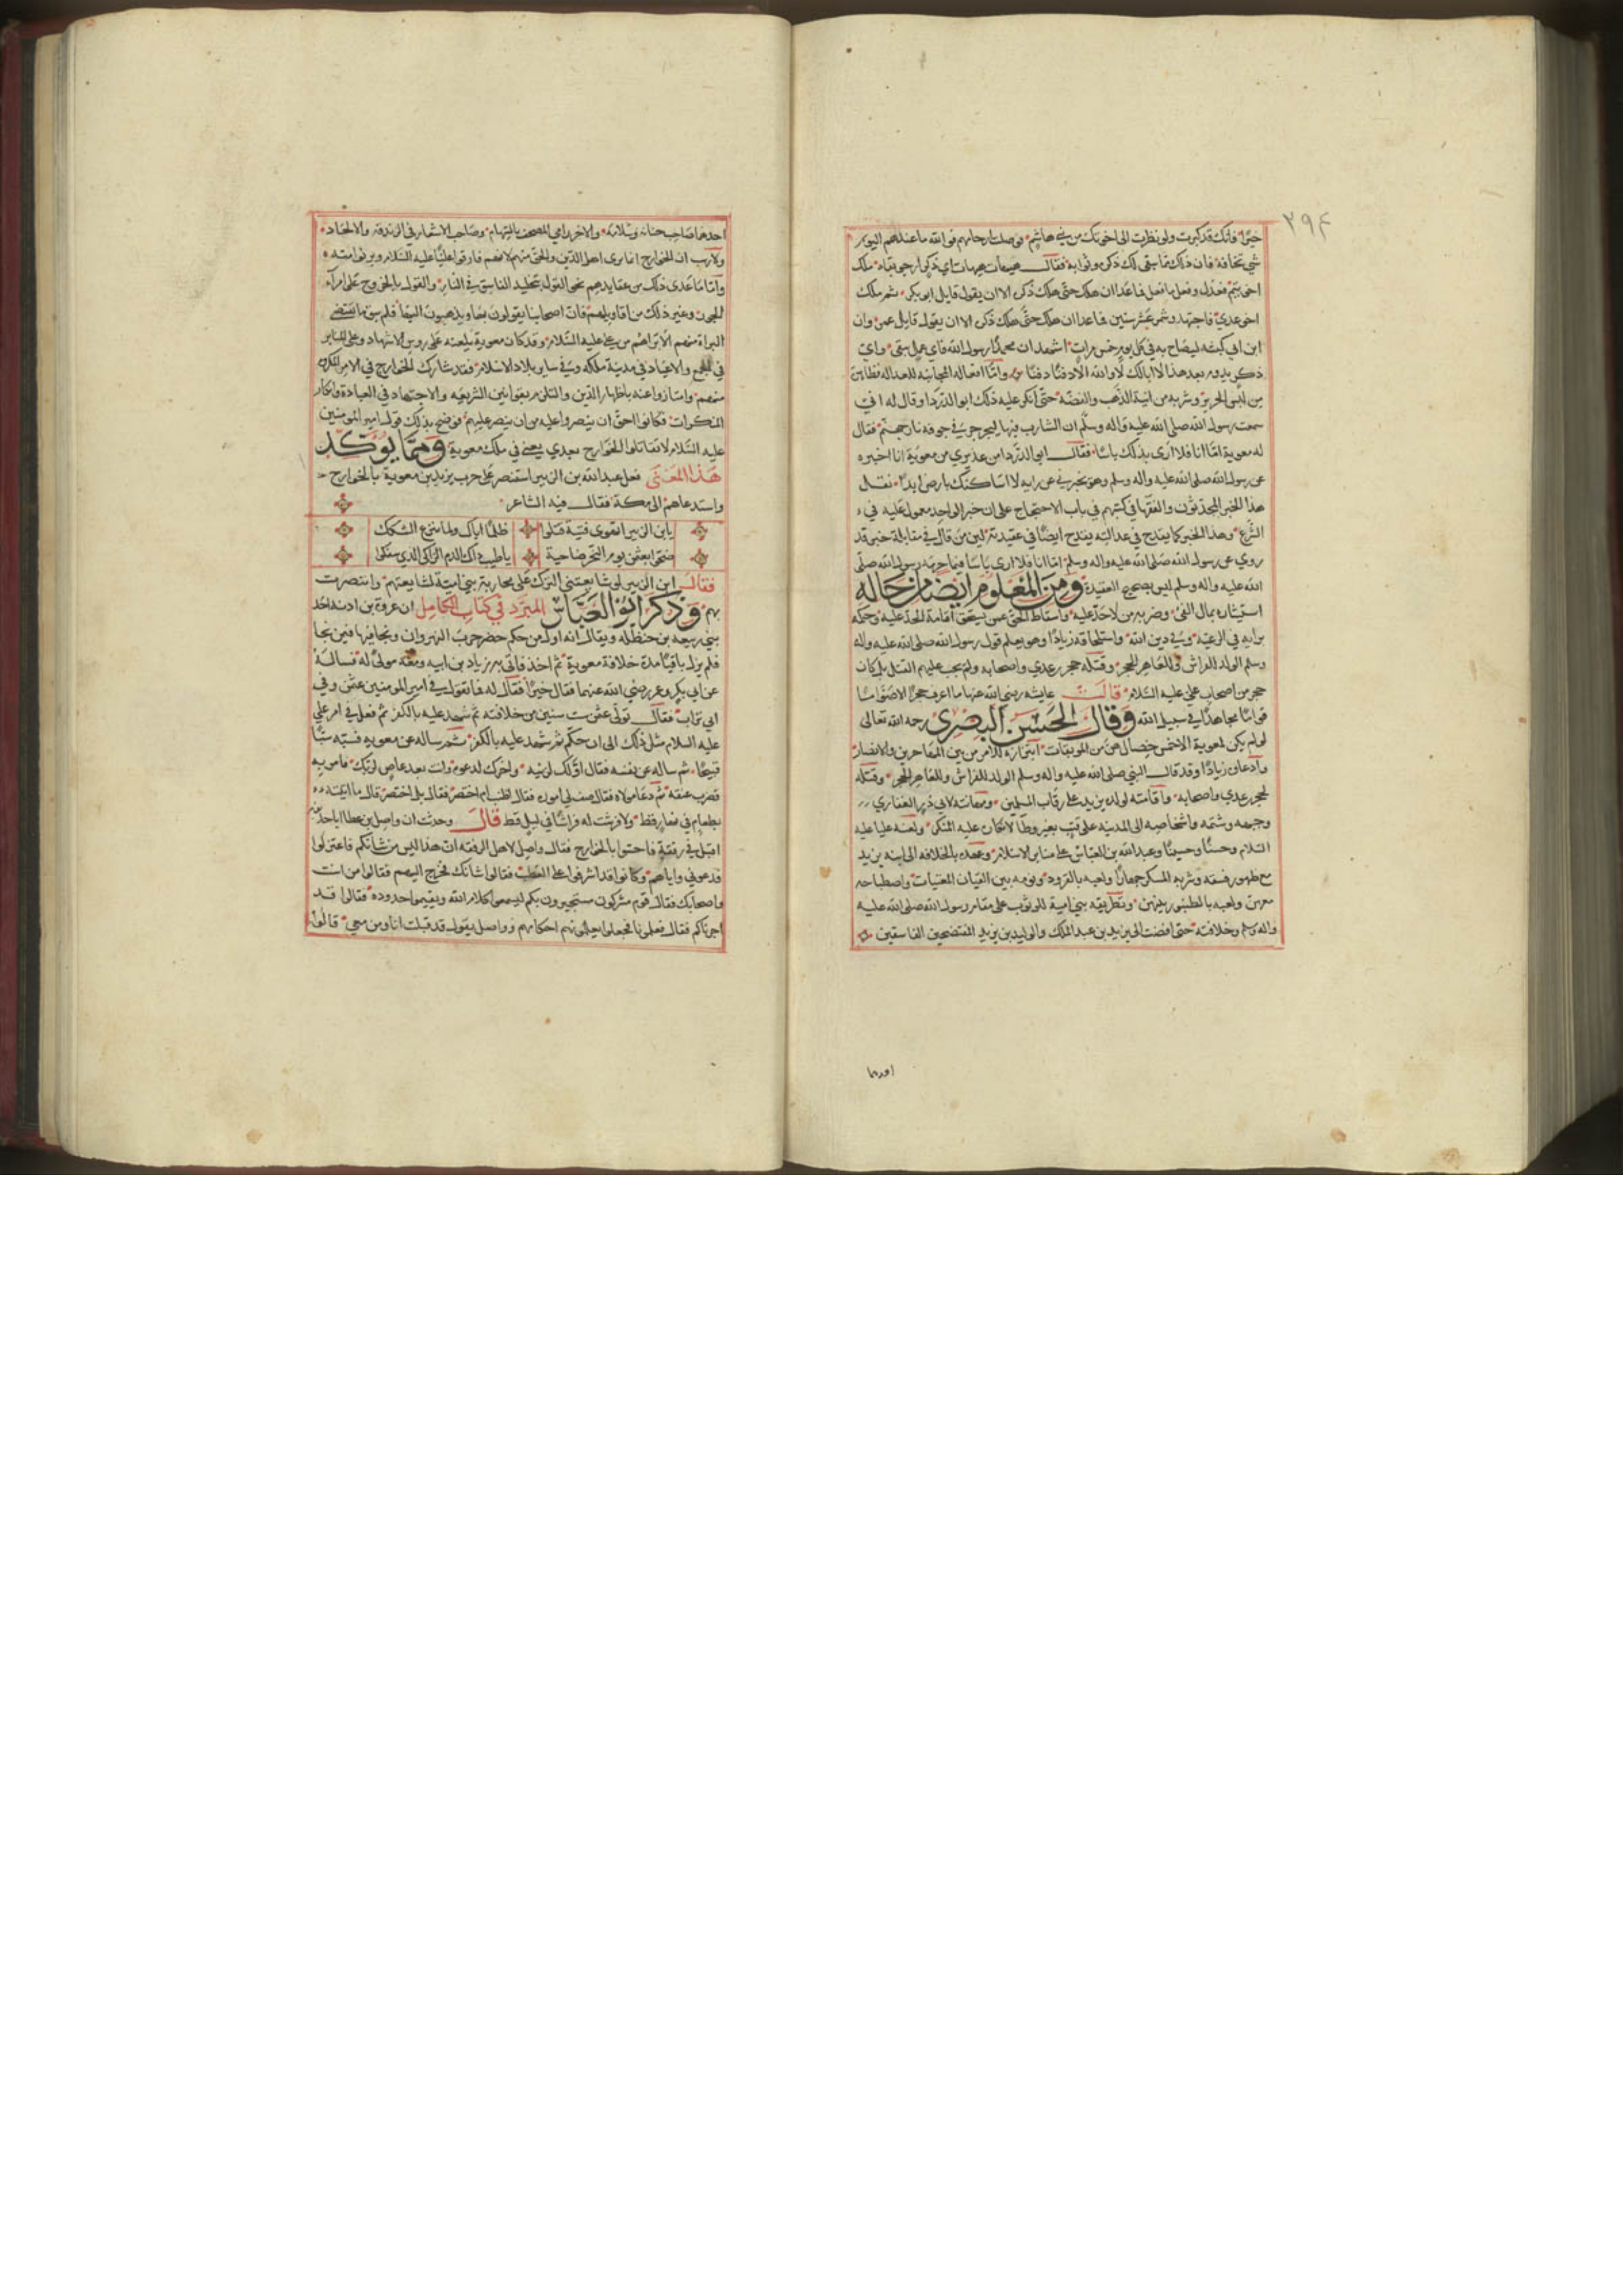 ٢٩٤
خيرًا فانك قد كبرت ولو نظرت الى اخوتك من بني هاشم فوصلت ارحامهم فوالله ما عندهم اليوم
شي تخافه فان ذلك مما يبقى لك ذكره وثوابه فقال هيهات هيهات اي ذكر ارجو بقاه ملك
اخو تيم فعدل وفعل ما فعل فما عدا ان هلك حتى هلك ذكره الا ان يقول قايل ابو بكر ثم ملك
اخو عدي فاجتهد وشمر عشر سنين فما عدا ان هلك حتى هلك ذكره الا ان يقول قايل عمر وان
ابن ابي كبشة ليصاح به في كل يوم خمس مرات اشهد ان محمدًا رسول الله فاي عمل يبقى واي
ذكر يدوم بعد هذا لا ابا لك لا والله الا دفنًا دفنًا واما افعاله المجانبة للعداله فظاهرة
من لبس الحرير وشربه من انية الذهب والفضة حتى انكر عليه ذلك ابو الدردا وقال له اني
سمعت رسول الله صلى الله عليه واله وسلم ان الشارب فيها ليجرجر في جوفه نار جهنم فقال
له معوية اما انا فلا ارى بذلك باسًا فقال ابو الدردا من عذيري من معوية انا اخبره
عن رسول الله صلى الله عليه واله وسلم وهو يخبرني عن رايه لا اساكنك بارض ابدًا نقل
هذا الخبر المحدثون والفقها في كتبهم في باب الاحتجاج على ان خبر الواحد معمول عليه في
الشرع وهذا الخبر كما يقدح في عدالته يقدح ايضًا في عقيدته لان من قال في مقابلة خبر قد
روي عن رسول الله صلى الله عليه واله وسلم اما انا فلا ارى باسًا فيما حرمه رسول الله صلى
الله عليه واله وسلم ليس بصحيح العقيدة ومن المعلوم ايضًا من حاله
استيثاره بمال الفيء وضربه من لا حد عليه واسقاط الحد عمن يستحق اقامة الحد عليه وحكمه
برايه في الرعية وفي دين الله واستلحاقه زيادًا وهو يعلم قول رسول الله صلى الله عليه واله
وسلم الولد للفراش وللعاهر الحجر وقتله حجر بن عدي واصحابه ولم يجب عليهم القتل بل كان
حجر من اصحاب علي عليه السلام قالت عايشه رضي الله عنها ما اعرف حجرًا الا صوامًا
قوامًا مجاهدًا في سبيل الله وقال الحسن البصري رحمه الله تعالى
لو لم يكن لمعوية الا خمس خصال هن من الموبقات ابتزازه للامر من بين المهاجرين والانصار
وادعاؤه زيادًا وقد قال النبي صلى الله عليه واله وسلم الولد للفراش وللعاهر الحجر وقتله
لحجر بن عدي واصحابه واقامته لولده يزيد على رقاب المسلمين ومهانته لابي ذر الغفاري
وجبهه وشتمه واشخاصه الى المدينه على قتب بغير وطا لانكاره عليه المنكر ولعنه عليا عليه
السلام وحسنًا وحسينًا وعبد الله بن العباس على منابر الاسلام وعهده بالخلافه الى ابنه يزيد
مع ظهور فسقه وشربه المسكر جهارًا ولعبه بالنرد ونومه بين القيان المغنيات واصطباحه
معهن ولعبه بالطنبور بينهن وتطريقه بني امية للوثوب على مقام رسول الله صلى الله عليه
واله وسلم وخلافته حتى افضت الى يزيد بن عبد الملك والوليد بن يزيد المفتضحين الفاسقين
احدهما
احدهما صاحب حبابة وسلامة والاخر رامي المصحف بالسهام وصاحب الاشعار في الزندقة والالحاد
ولا ريب ان الخوارج انما برى اهل الدين والحق منهم لانهم فارقوا عليًا عليه السلام وبرئوا منه
واما ما عدى ذلك من عقايدهم نحو القول بتخليد الفاسق في النار والقول بالخروج على امرآء
الجور وغير ذلك من اقاويلهم فان اصحابنا يقولون بها ويذهبون اليها فلم يبق ما يقتضي
البراة منهم الا براتهم من علي عليه السلام وقد كان معوية يلعنه على روس الاشهاد وعلى المنابر
في الجمع والاعياد في مدينة ملكه وفي ساير بلاد الاسلام فقد شارك الخوارج في الامر المكروه
منهم وامتازوا عنه باظهار الدين والتلزم بقوانين الشريعه والاجتهاد في العبادة وانكار
المنكرات فكانوا احق ان ينصروا عليه من ان ينصر عليهم فوضح بذلك قول امير المومنين
عليه السلام لا تقاتلوا الخوارج بعدي يعني في ملك معوية ومما يؤكد
هذا المعنى فعل عبد الله بن الزبير استنصر على حرب يزيد بن معوية بالخوارج
واستدعاهم الى مكة فقال فيه الشاعر
يا بن الزبير اتهوى فتية قتلوا ظلمًا اباك ولما تنزع الشكك
ضحوا بعثمن يوم النحر ضاحية يا طيب ذاك الدم الزاكي الذي سفكوا
فقال ابن الزبير لو شايعتني الترك على محاربة بني امية لشايعتهم وانتصرت
بهم وذكر ابو العباس المبرد في كتاب الكامل ان عروة بن ادية احد
بني ربيعه بن حنظله ويقال انه اول من حكم حضر حرب النهروان ونجا فيها فيمن نجا
فلم يزل باقيًا مدة خلافة معوية ثم اخذ فاتي به زياد بن ابيه ومعه مولى له فساله
عن ابي بكر وعمر رضي الله عنهما فقال خيرًا فقال له فما تقول في امير المومنين عثمن وفي
ابي تراب فقال تولى عثمن ست سنين من خلافته ثم شهد عليه بالكفر ثم فعل في امر علي
عليه السلام مثل ذلك الى ان حكم ثم شهد عليه بالكفر ثم ساله عن معوية فسبه سبًا
قبيحًا ثم ساله عن نفسه فقال اولك لزنيه واخرك لدعوه وانت بعد عاص لربك فامر به
فضرب عنقه ثم دعا مولاه فقال صف لي اموره فقال اطنب ام اختصر فقال بل اختصر قال ما اتيته
بطعام في نهار قط ولا فرشت له فراشًا في ليل قط قال وحدثت ان واصل بن عطا ابا حذيفه
اقبل في رفقة فاحسوا بالخوارج فقال واصل لاهل الرفقه ان هذا ليس من شانكم فاعتزلوا
فدعوني واياهم وكانوا قد اشرفوا على العطب فقالوا شانك فخرج اليهم فقالوا من انت
واصحابك فقال قوم مشركون مستجيرون بكم ليسمعوا كلام الله ويقيموا حدوده فقالوا قد
اجرناكم فقال فعلمونا فجعلوا يعلمونهم احكامهم وواصل يقول قد قبلت انا ومن معي قالوا